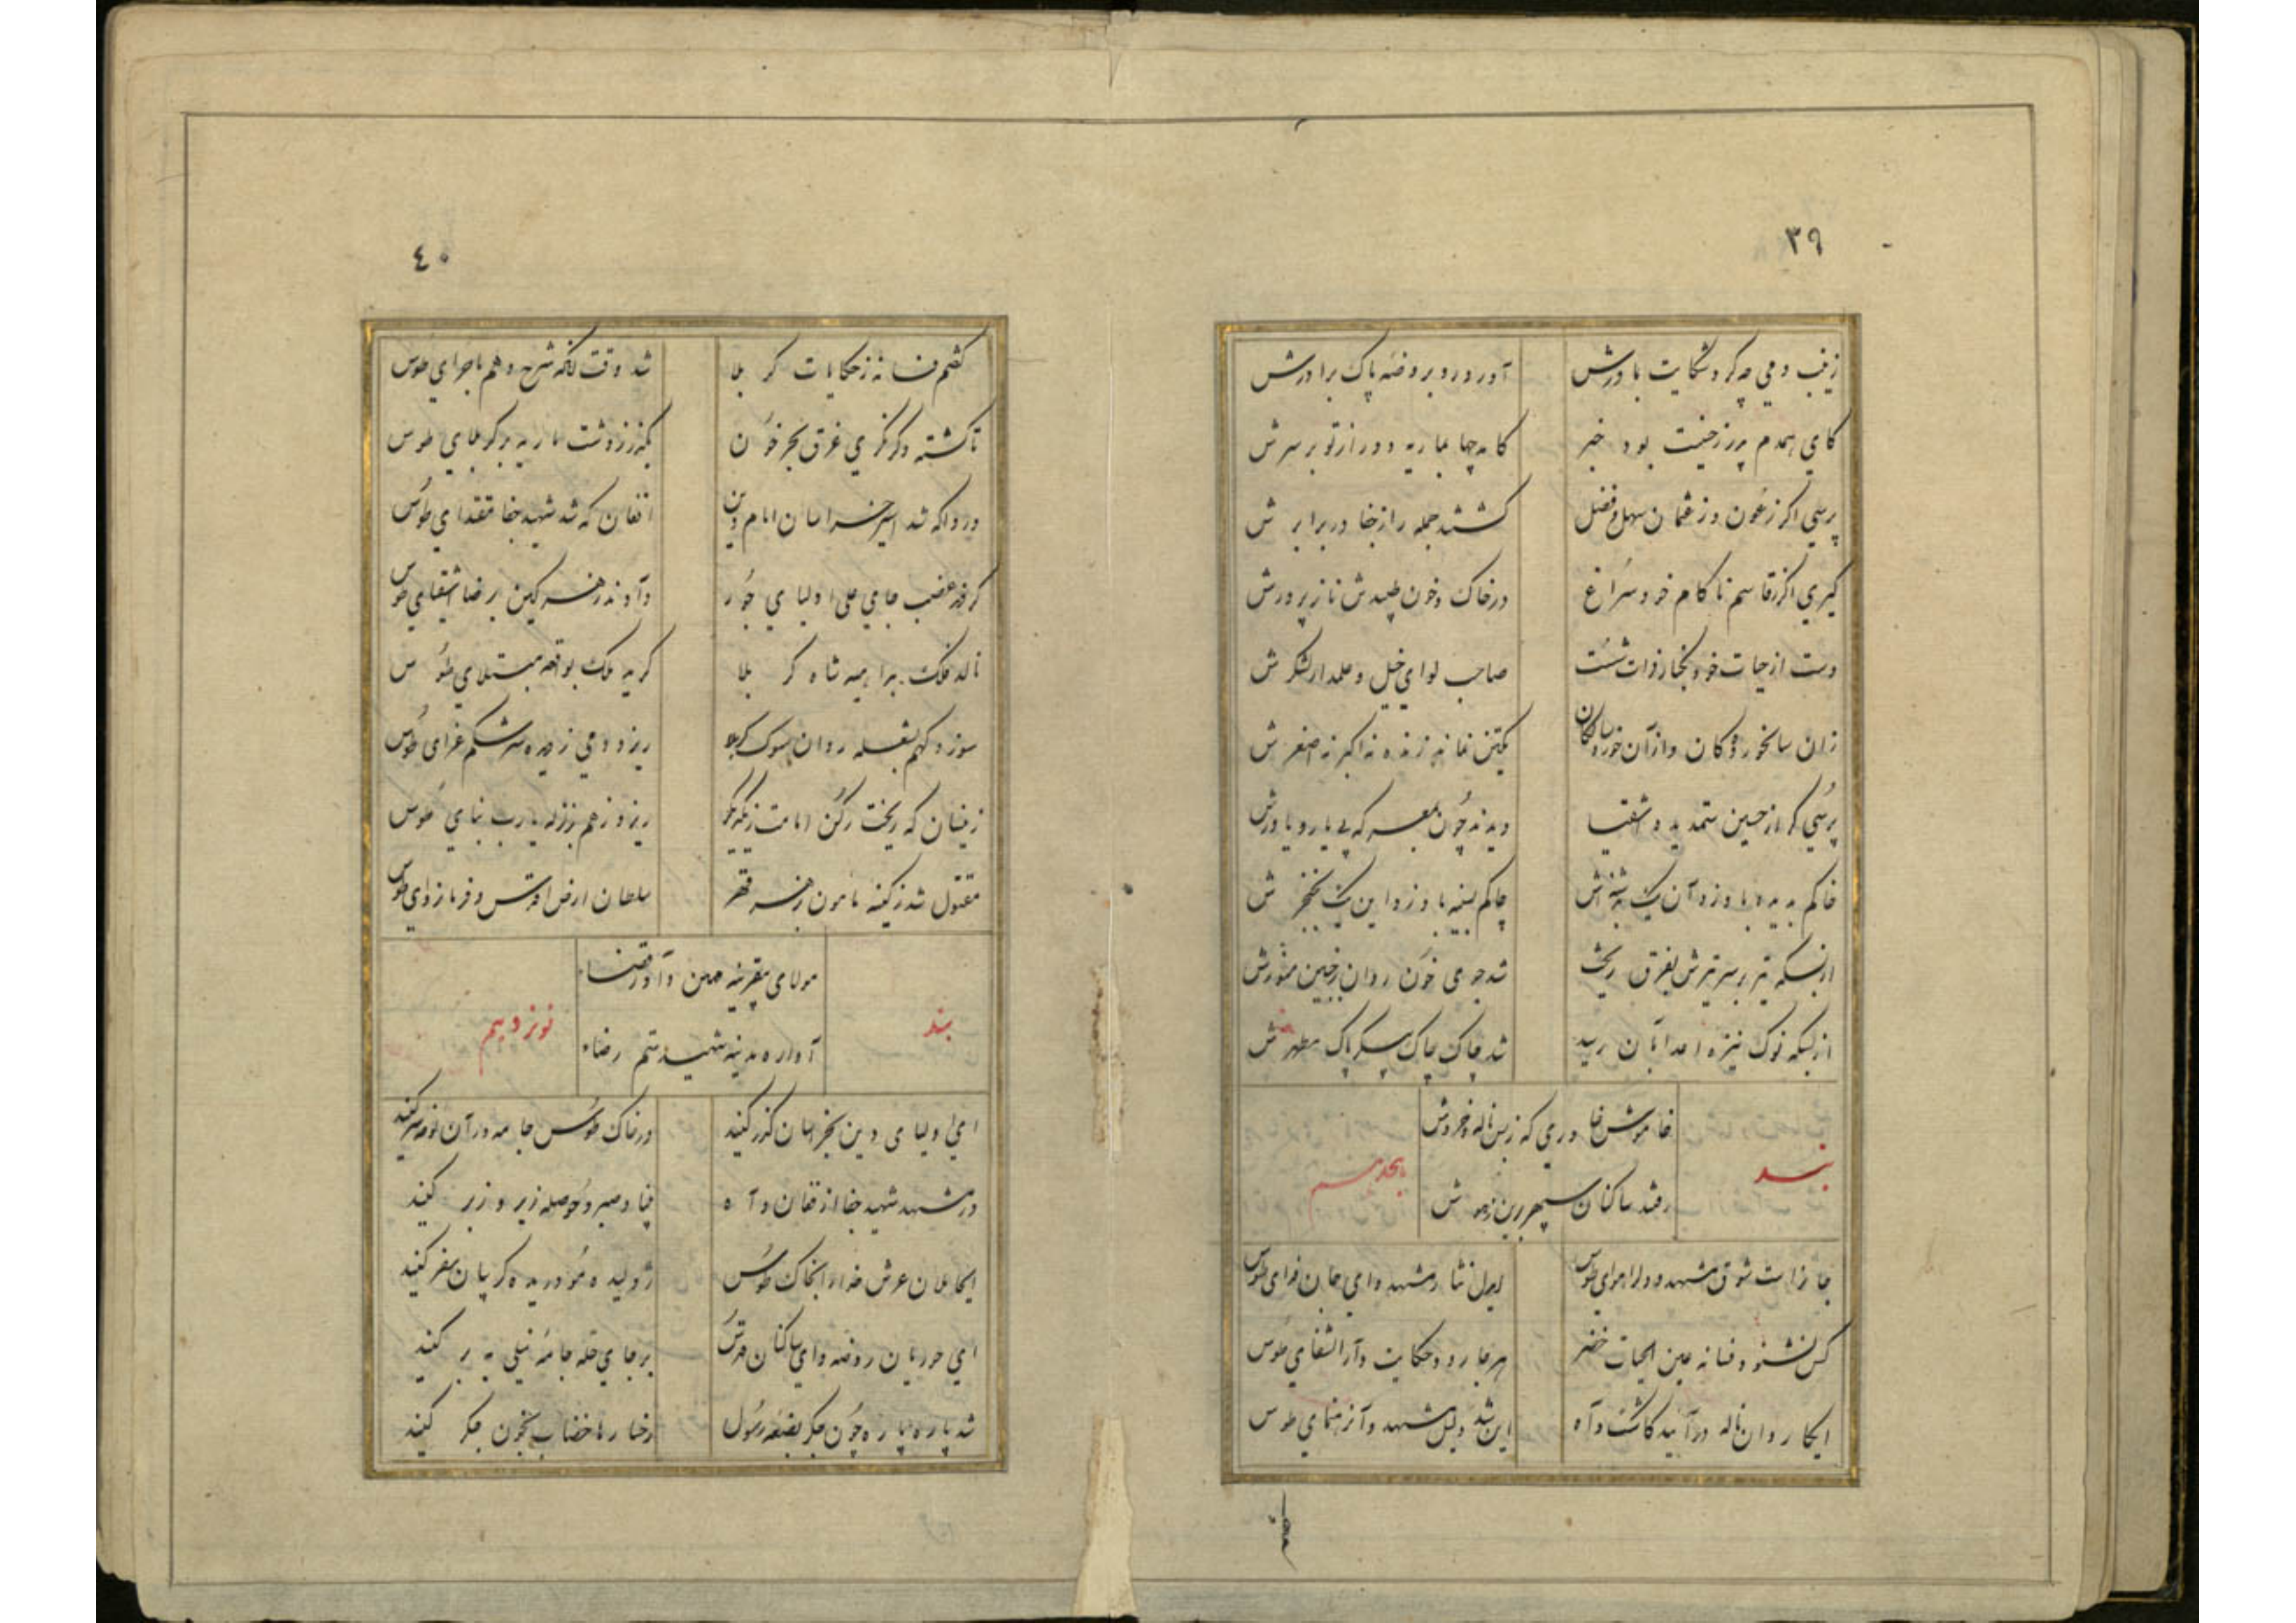 ٣٩
زینب دمی چه کرد شکایت با درش آورد رو بروضه پاک برادرش
کای همدم پدر زحنیت بود خبر کامد چها بماریه دور از تو بر سرش
پرسی اگر زعون و ز عثمان سهل و فضل کشتند جمله را ز جفا در برابرش
گیری اگر ز قاسم ناکام خود سراغ در خاک و خون طپید تن نازپرورش
دست از حیات خود بکنار فرات شست صاحب لوای خیل و علمدار لشکرش
زان سالخوردگان و از آن خورد سالکان یکتن نماند زنده نه اکبر نه اصغرش
پرسی گر از حسین ستمدیده اشقیا دیدند چون بمعرکه بی یار و یاورش
خاکم بدیده باد زد آن یک به چاکم بسینه باد زد این یک بخنجرش
از بسکه تیر بر سر تیرش بفرق ریخت شد جوی خون روان ز جبین منورش
از بسکه نوک نیزه اعدا بآن رسید شد چاک چاک پیکر پاک مطهرش
بند
خاموش خاوری که زین ناله و خروش
رفتند ساکنان سپهر برین ز هوش
هجدهم
جانراست شوق مشهد و دلرا هوای طوس ایدل نثار مشهد و ای جان فدای طوس
کس نشنود فسانه عین الحیات خضر هرجا رود حکایت دار الشفای طوس
ایکاروان ناله درآیید کاشک و آه این شد دلیل مشهد و آن رهنمای طوس
٤٠
گفتم فسانه ز حکایات کربلا شد وقت آنکه شرح دهم ماجرای طوس
تا گشته دگر نگری غرق بحر خون بگذر ز دشت ماریه بر کربلای طوس
دردا که شد اسیر خراسان امام دین افغان که شد شهید جفا مقتدای طوس
گرفته غصب جای علی اولیای جور دادند زهر کین برضا اشقیای طوس
نالد فلک براهمه شاه کربلا گرید ملک بواقعه مبتلای طوس
سوزد دلم بشعله روان سوک کربلا ریزد دمی ز دیده سرشکم عزای طوس
زینسان که ریخت رکن امامت ز یکدگر ریزد ز هم بزلزله یارب بنای طوس
مقتول شد ز کینه مامون بزهر قهر سلطان ارض اقدس و فرمانروای طوس
بند
مولای بیقرینه همین داور قضاء
آواره مدینه شهید ستم رضاء
نوزدهم
ای اولیای دین بخراسان گذر کنید در خاک طوس جامه در آن نوحه سر کنید
در مشهد شهید جفا از فغان و آه بنیاد صبر و حوصله زیر و زبر کنید
ایحاملان عرش خدا را بخاک طوس ژولیده مو دریده گریبان سفر کنید
ای حوریان روضه و ای ساکنان قدس بر جای حله جامه نیلی به بر کنید
شد پاره پاره چون جگر بضعه رسول رخسارها خضاب بخون جگر کنید